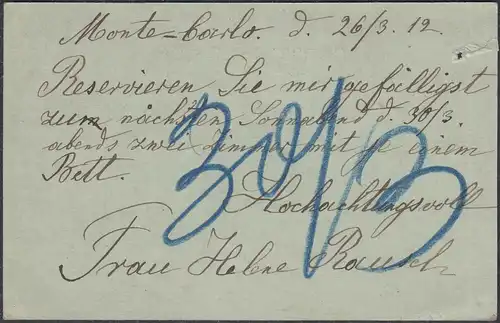 Monte=Carlo. d. 26/3. 12.
Reservieren Sie mir gefälligst
zum nächsten Sonnabend d. 30/3.
abends zwei Zimmer mit je einem
Bett.
30/3
Hochachtungsvoll
Frau Helene Rausch